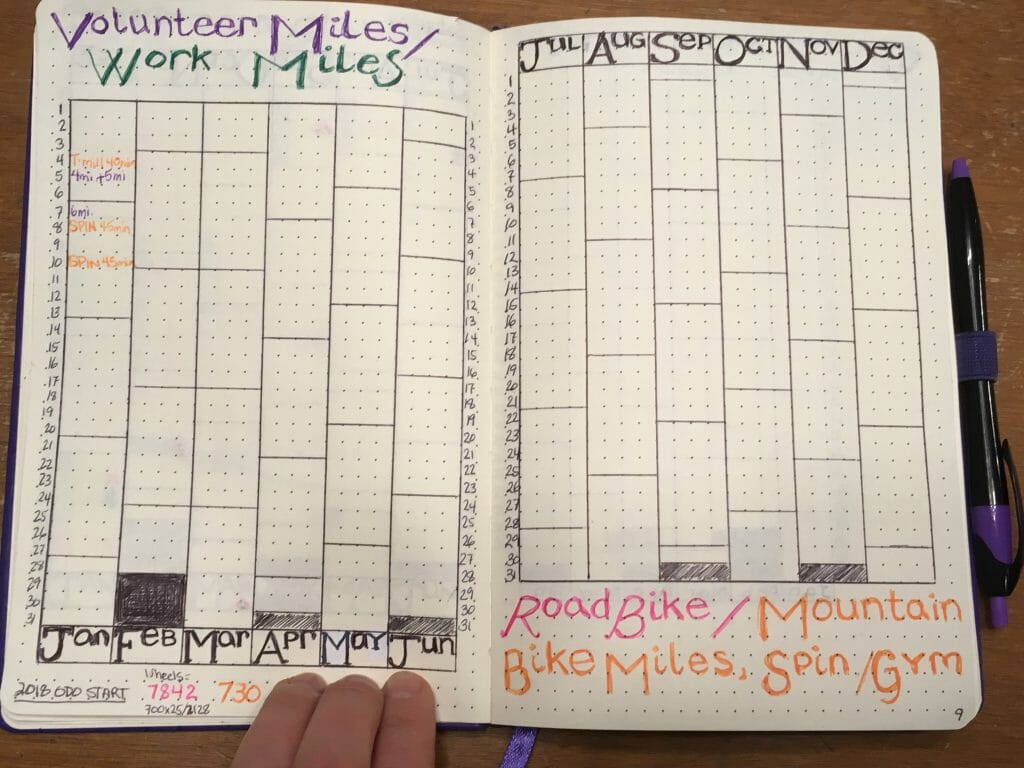 Volunteer Miles/
Work Miles
1 1
2 2
3 3
4 T-mill 40min 4
5 4mi + 5mi 5
6 6
7 6mi. 7
8 SPIN 45min 8
9 9
10 SPIN 45min 10
11 11
12 12
13 13
14 14
15 15
16 16
17 17
18 18
19 19
20 20
21 21
22 22
23 23
24 24
25 25
26 26
27 27
28 28
29 29
30 30
31 31
Jan Feb Mar Apr May Jun
2018 ODO START
Wheels:
7842 730
700x25/2128
Jul Aug Sep Oct Nov Dec
1
2
3
4
5
6
7
8
9
10
11
12
13
14
15
16
17
18
19
20
21
22
23
24
25
26
27
28
29
30
31
Road Bike / Mountain
Bike Miles, Spin/Gym
9